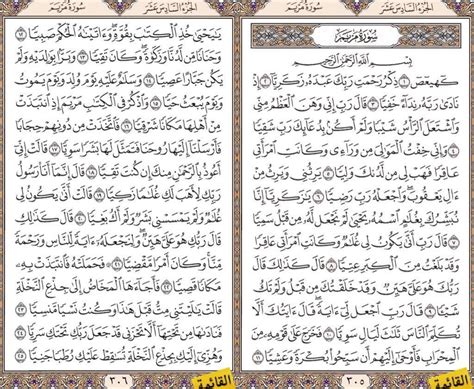 الجُزْءُ السَّادِسَ عَشَرَ سُورَةُ مَرْيَمَ
سُورَةُ مَرْيَمَ
بِسْمِ اللَّهِ الرَّحْمَٰنِ الرَّحِيمِ
كٓهيعٓصٓ ١ ذِكْرُ رَحْمَتِ رَبِّكَ عَبْدَهُۥ زَكَرِيَّآ ٢ إِذْ
نَادَىٰ رَبَّهُۥ نِدَآءً خَفِيًّا ٣ قَالَ رَبِّ إِنِّي وَهَنَ ٱلْعَظْمُ مِنِّي
وَٱشْتَعَلَ ٱلرَّأْسُ شَيْبًا وَلَمْ أَكُنۢ بِدُعَآئِكَ رَبِّ شَقِيًّا
٤ وَإِنِّي خِفْتُ ٱلْمَوَٰلِيَ مِن وَرَآءِي وَكَانَتِ ٱمْرَأَتِي
عَاقِرًا فَهَبْ لِي مِن لَّدُنكَ وَلِيًّا ٥ يَرِثُنِي وَيَرِثُ مِنْ
ءَالِ يَعْقُوبَ وَٱجْعَلْهُ رَبِّ رَضِيًّا ٦ يَٰزَكَرِيَّآ إِنَّا
نُبَشِّرُكَ بِغُلَٰمٍ ٱسْمُهُۥ يَحْيَىٰ لَمْ نَجْعَل لَّهُۥ مِن قَبْلُ سَمِيًّا
٧ قَالَ رَبِّ أَنَّىٰ يَكُونُ لِي غُلَٰمٌ وَكَانَتِ ٱمْرَأَتِي عَاقِرًا
وَقَدْ بَلَغْتُ مِنَ ٱلْكِبَرِ عِتِيًّا ٨ قَالَ كَذَٰلِكَ قَالَ رَبُّكَ
هُوَ عَلَيَّ هَيِّنٌ وَقَدْ خَلَقْتُكَ مِن قَبْلُ وَلَمْ تَكُ شَيْـًٔا
٩ قَالَ رَبِّ ٱجْعَل لِّيٓ ءَايَةً قَالَ ءَايَتُكَ أَلَّا
تُكَلِّمَ ٱلنَّاسَ ثَلَٰثَ لَيَالٍ سَوِيًّا ١٠ فَخَرَجَ عَلَىٰ قَوْمِهِۦ مِنَ
ٱلْمِحْرَابِ فَأَوْحَىٰٓ إِلَيْهِمْ أَن سَبِّحُوا۟ بُكْرَةً وَعَشِيًّا ١١
٣٠٥ القائمة
الجُزْءُ السَّادِسَ عَشَرَ سُورَةُ مَرْيَمَ
يَٰيَحْيَىٰ خُذِ ٱلْكِتَٰبَ بِقُوَّةٍ وَءَاتَيْنَٰهُ ٱلْحُكْمَ صَبِيًّا ١٢
وَحَنَانًا مِّن لَّدُنَّا وَزَكَوٰةً وَكَانَ تَقِيًّا ١٣ وَبَرًّۢا بِوَٰلِدَيْهِ وَلَمْ
يَكُن جَبَّارًا عَصِيًّا ١٤ وَسَلَٰمٌ عَلَيْهِ يَوْمَ وُلِدَ وَيَوْمَ يَمُوتُ
وَيَوْمَ يُبْعَثُ حَيًّا ١٥ وَٱذْكُرْ فِي ٱلْكِتَٰبِ مَرْيَمَ إِذِ ٱنتَبَذَتْ
مِنْ أَهْلِهَا مَكَانًا شَرْقِيًّا ١٦ فَٱتَّخَذَتْ مِن دُونِهِمْ حِجَابًا
فَأَرْسَلْنَآ إِلَيْهَا رُوحَنَا فَتَمَثَّلَ لَهَا بَشَرًا سَوِيًّا ١٧ قَالَتْ إِنِّيٓ
أَعُوذُ بِٱلرَّحْمَٰنِ مِنكَ إِن كُنتَ تَقِيًّا ١٨ قَالَ إِنَّمَآ أَنَا۠ رَسُولُ
رَبِّكِ لِأَهَبَ لَكِ غُلَٰمًا زَكِيًّا ١٩ قَالَتْ أَنَّىٰ يَكُونُ لِي
غُلَٰمٌ وَلَمْ يَمْسَسْنِي بَشَرٌ وَلَمْ أَكُ بَغِيًّا ٢٠ قَالَ كَذَٰلِكِ قَالَ
رَبُّكِ هُوَ عَلَيَّ هَيِّنٌ وَلِنَجْعَلَهُۥٓ ءَايَةً لِّلنَّاسِ وَرَحْمَةً
مِّنَّا وَكَانَ أَمْرًا مَّقْضِيًّا ٢١ فَحَمَلَتْهُ فَٱنتَبَذَتْ بِهِۦ
مَكَانًا قَصِيًّا ٢٢ فَأَجَآءَهَا ٱلْمَخَاضُ إِلَىٰ جِذْعِ ٱلنَّخْلَةِ
قَالَتْ يَٰلَيْتَنِي مِتُّ قَبْلَ هَٰذَا وَكُنتُ نَسْيًا مَّنسِيًّا ٢٣
فَنَادَىٰهَا مِن تَحْتِهَآ أَلَّا تَحْزَنِي قَدْ جَعَلَ رَبُّكِ تَحْتَكِ سَرِيًّا ٢٤
وَهُزِّيٓ إِلَيْكِ بِجِذْعِ ٱلنَّخْلَةِ تُسَٰقِطْ عَلَيْكِ رُطَبًا جَنِيًّا ٢٥
٣٠٦ القائمة